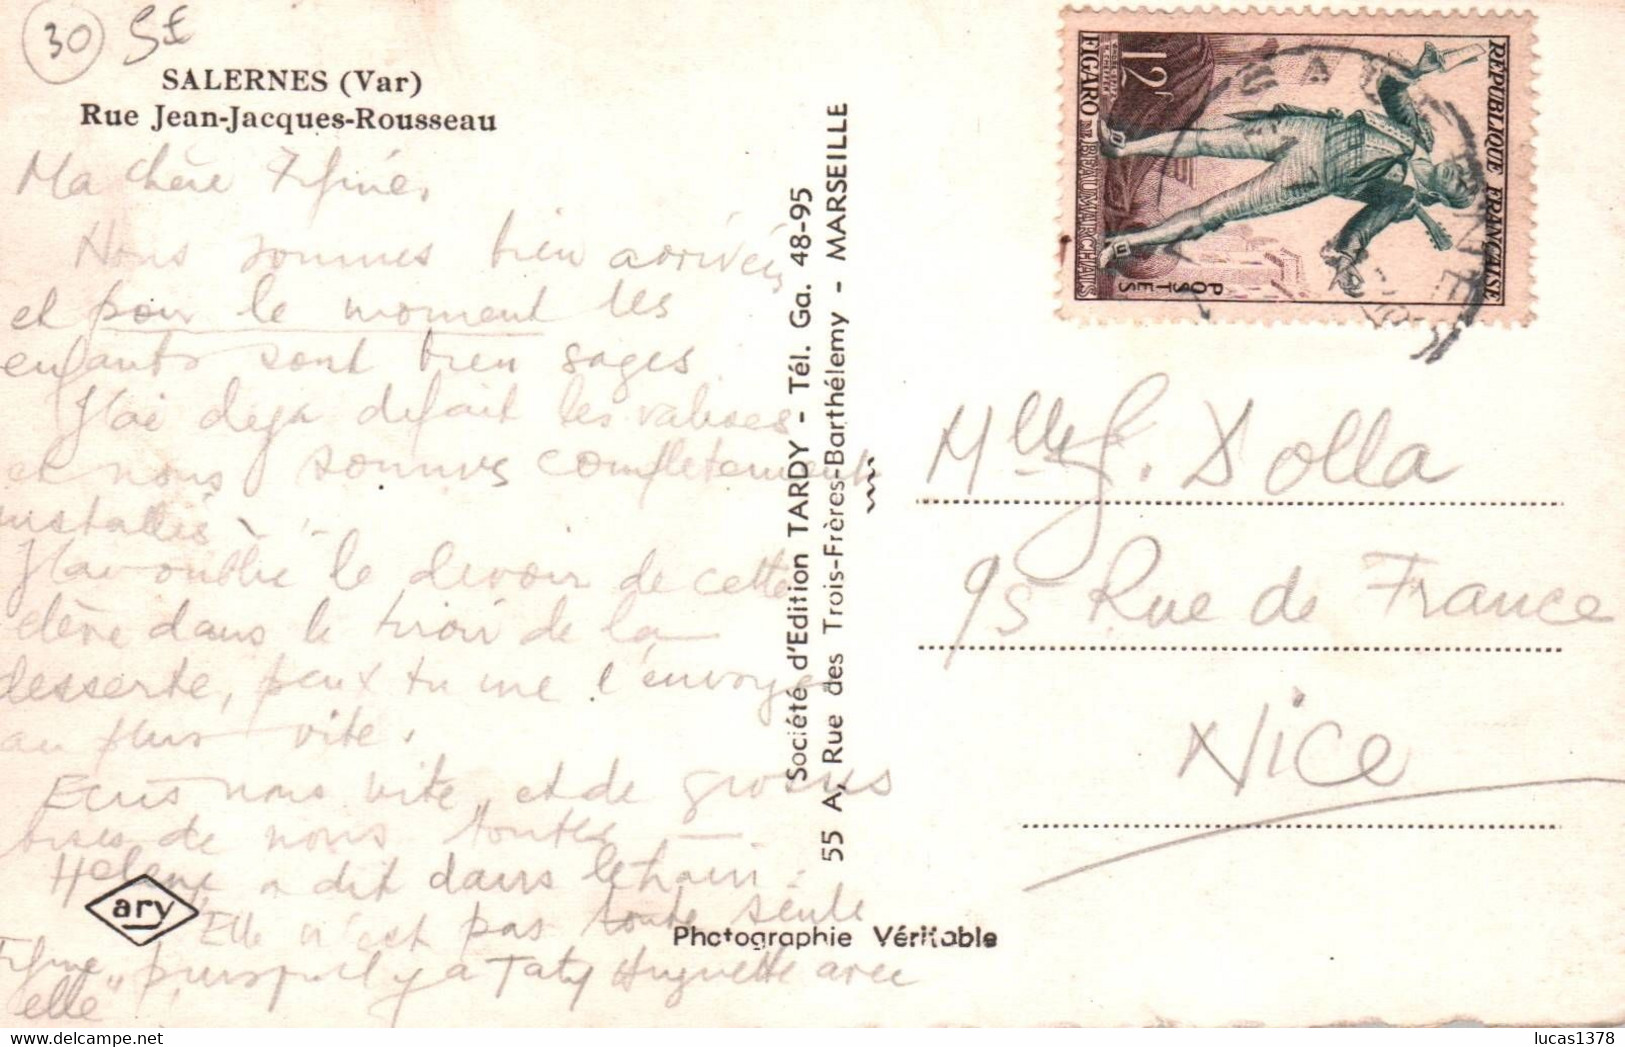 30
SALERNES (Var)
Rue Jean-Jacques-Rousseau
Ma chère Fifine,
Nous sommes bien arrivées
et pour le moment les
enfants sont bien sages
J'ai deja defait les valises
et nous sommes completement
installés
J'ai oublié le devoir de cette
élève dans le tiroir de la
desserte, peux tu me l'envoyer
au plus vite.
Ecris nous vite, et de grosses
bises de nous toutes
Helene a dit dans le train :
"Elle n'est pas toute seule
Fifine, puisqu'il y a Taty Huguette avec
elle"
ary
Société d'Edition TARDY - Tél. Ga. 48-95
55 A, Rue des Trois-Frères-Barthélemy - MARSEILLE
Photographie Véritable
REPUBLIQUE FRANÇAISE
POSTES
12F
FIGARO DE BEAUMARCHAIS
Mlle J. Dolla
95 Rue de France
Nice
lucas1378